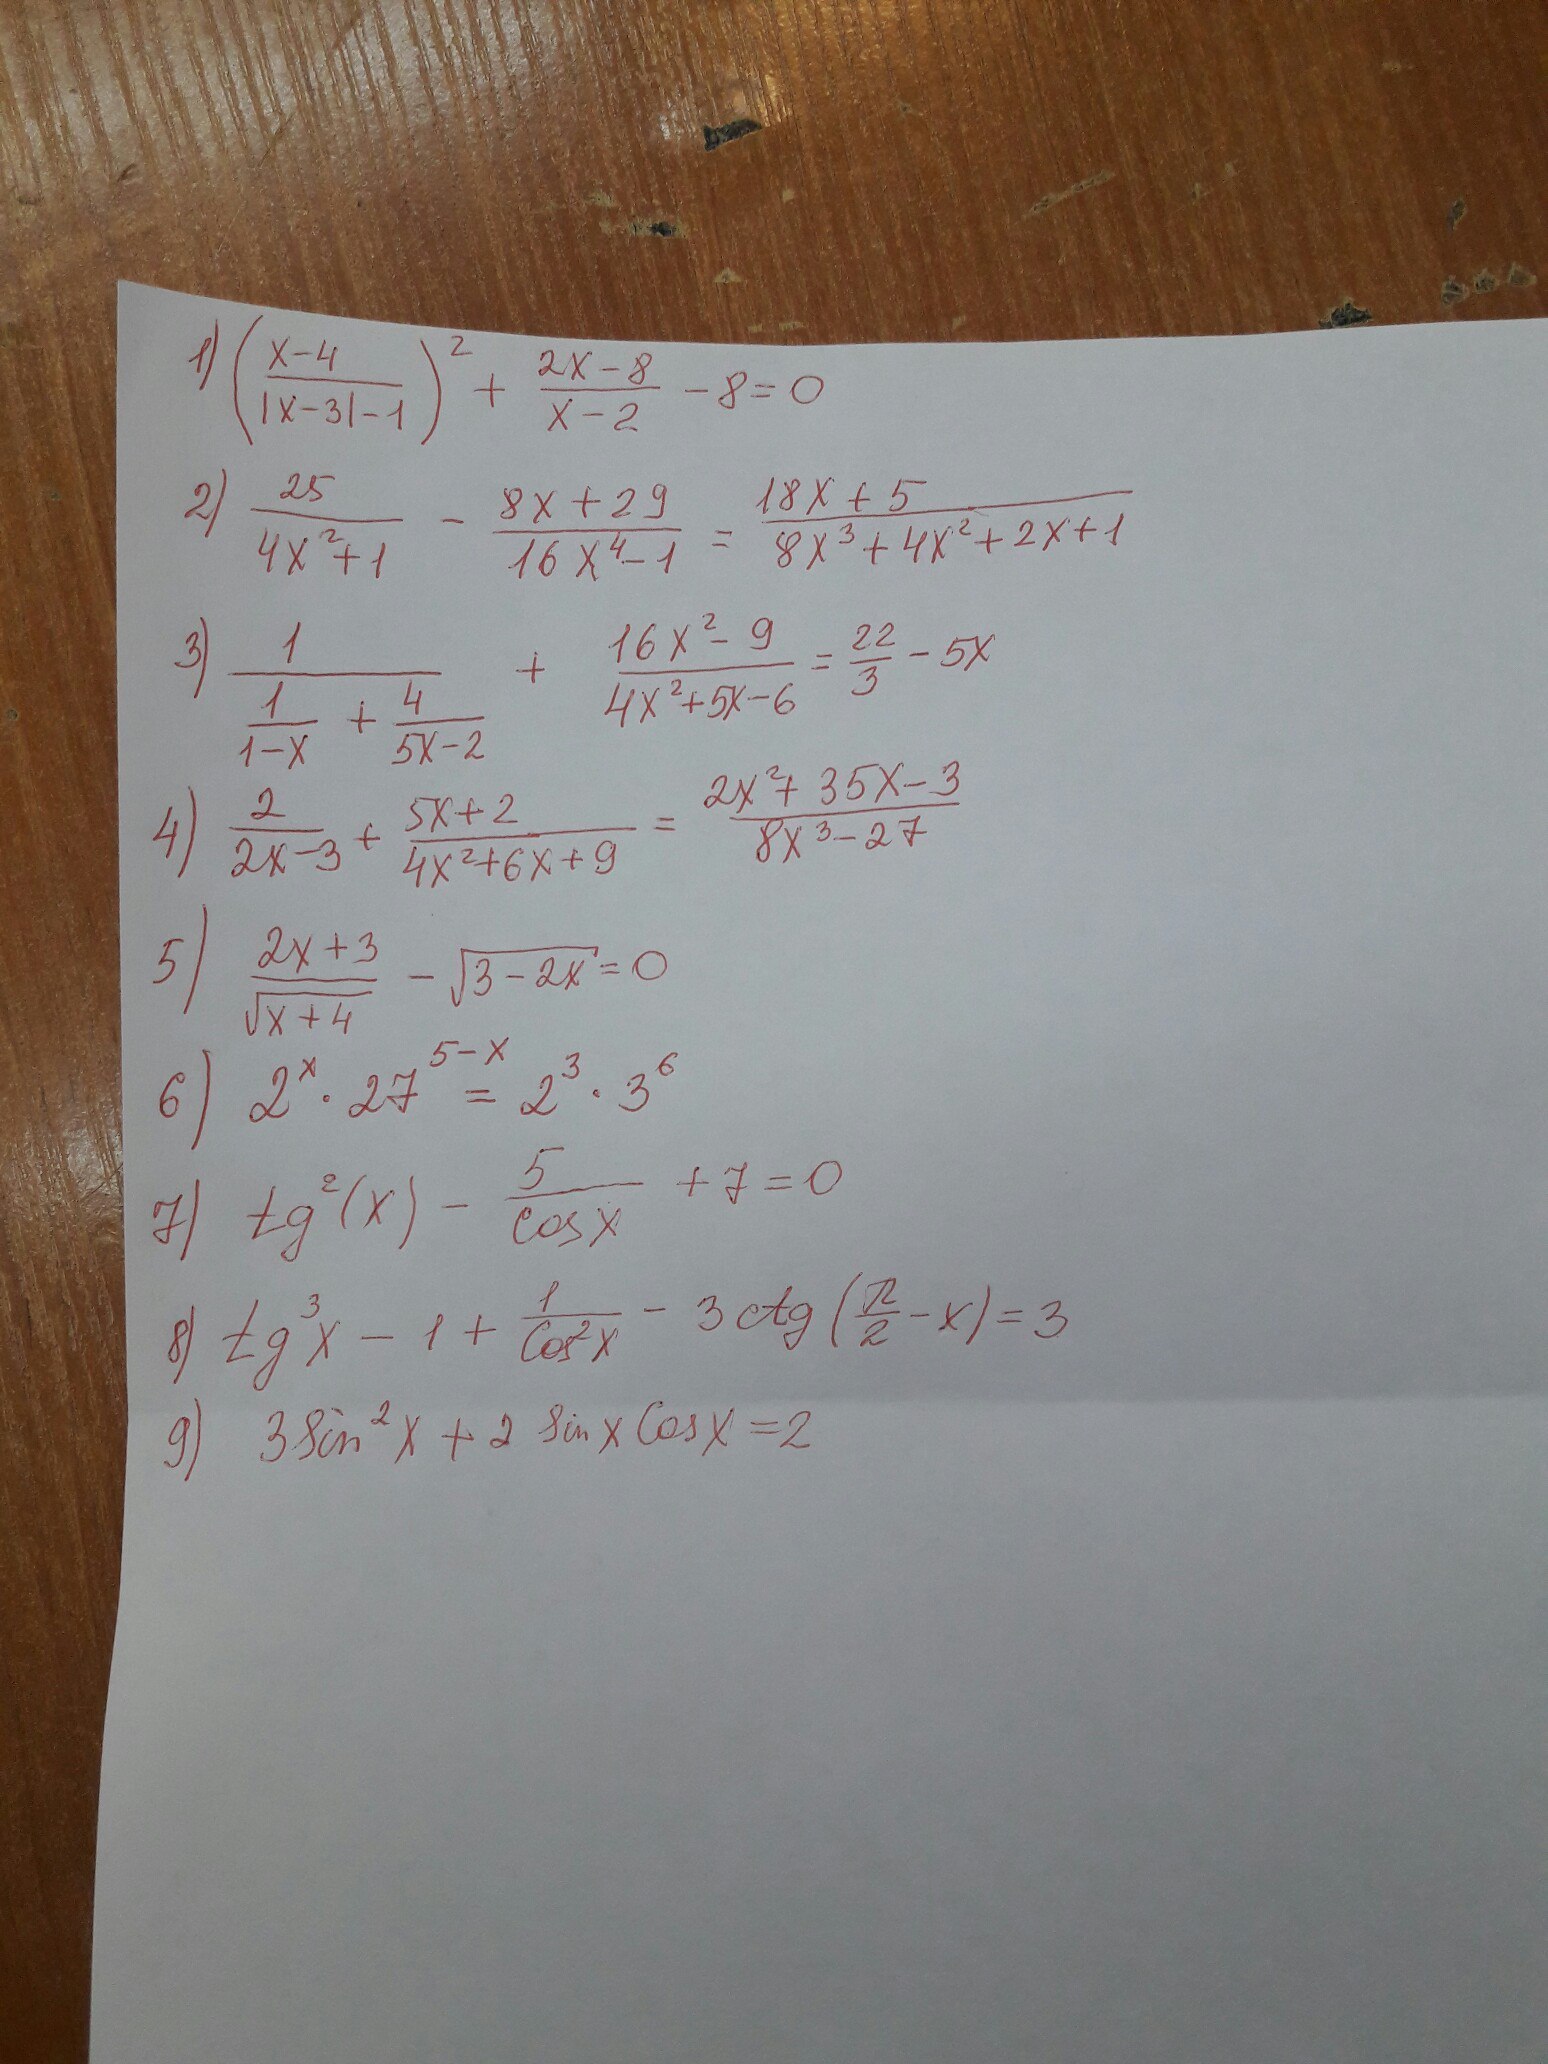 1) ((x-4)/(|x-3|-1))² + (2x-8)/(x-2) - 8 = 0
2) 25/(4x²+1) - (8x+29)/(16x⁴-1) = (18x+5)/(8x³+4x²+2x+1)
3) 1/(1/(1-x) + 4/(5x-2)) + (16x²-9)/(4x²+5x-6) = 22/3 - 5x
4) 2/(2x-3) + (5x+2)/(4x²+6x+9) = (2x²+35x-3)/(8x³-27)
5) (2x+3)/√(x+4) - √(3-2x) = 0
6) 2ˣ · 27⁵⁻ˣ = 2³ · 3⁶
7) tg²(x) - 5/cosx + 7 = 0
8) tg³x - 1 + 1/cos²x - 3ctg(π/2 - x) = 3
9) 3sin²x + 2 sinx cosx = 2